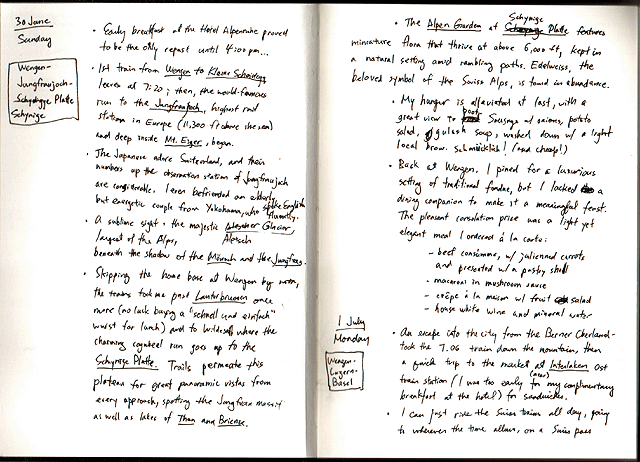 30 June
Sunday
Wengen-
Jungfraujoch-
Schynige Platte
Schynige
• Early breakfast at the Hotel Alpenruhe proved
to be the only repast until 4:00 pm...
• 1st train from Wengen to Kleine Scheidegg
leaves at 7:20; then, the world-famous
run to the Jungfraujoch, highest rail
station in Europe (11,300 ft above the sea)
and deep inside Mt. Eiger, began.
• The Japanese adore Switzerland, and their
numbers up the observation station of Jungfraujoch
are considerable. I even befriended an elderly
but energetic couple from Yokohama, who spoke English
fluently.
• A sublime sight: the majestic Aletscher Glacier,
Aletsch
largest of the Alps,
beneath the shadow of the Mönch and the Jungfrau.
• Skipping the home base at Wengen by noon,
the trains took me past Lauterbrunnen once
more (no luck buying a "schnell und einfach"
wurst for lunch) and to Wilderswil where the
charming cogwheel run goes up to the
Schynige Platte. Trails permeate this
plateau for great panoramic vistas from
every approach, spotting the Jungfrau massif
as well as lakes of Thun and Brienz.
Schynige
• The Alpen Garden at Schynige Platte features
miniature flora that thrive at above 6,000 ft, kept in
a natural setting amid rambling paths. Edelweiss, the
beloved symbol of the Swiss Alps, is found in abundance.
• My hunger is alleviated at last, with a
great view to boot. Sausage w/ onions, potato
salad, gulash soup, washed down w/ a light
local brew. Schmecklich! (and cheap!)
• Back at Wengen, I pined for a luxurious
setting of traditional fondue, but I lacked a
dining companion to make it a meaningful feast.
The pleasant consolation prize was a light yet
elegant meal I ordered à la carte:
- beef consommé, w/ julienned carrots
and presented w/ a pastry shell
- macaroni in mushroom sauce
- crêpe à la maison w/ fruit salad
- house white wine and mineral water
1 July
Monday
Wengen-
Luzern-
Basel
• An escape into the city from the Berner Oberland-
took the 7.06 train down the mountain, then
a quick trip to the market at Interlaken Ost
(near)
train station (I was too early for my complimentary
breakfast at the hotel) for sandwiches.
• I can just ride the Swiss trains all day, going
to wherever the time allows, on a Swiss pass